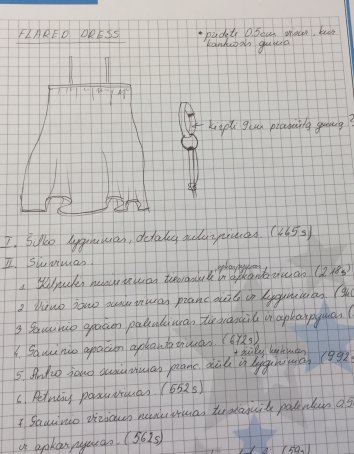 FLARED DRESS
• padėti 0.5cm virsu, kur
kankosis guma
kirpti 9cm prasiūtą gumą?
I. Šilko lyginimas, detalių sukirpimas. (465s)
II. Siuvimas.
1. nusiuvimas tiesiasiūle ir apkantavimas (218s)
apkarpymas
2. Vieno šono susiuvimas pranc. siūle ir lyginimas.
3. Sauninio apačios palenkimas tiesiasiūle ir apkarpymas (
4. Sauninio apačios apkantavimas (672s)
5. Antro šono susiuvimas pranc. siūle ir lyginimas (992s
+ siūlų
6. Petnešų pasiuvimas. (552s)
7. Sauninio viršaus nusiuvimas tiesiasiūle palenkus 0.5
ir apkarpymas. (562s)
(59s)